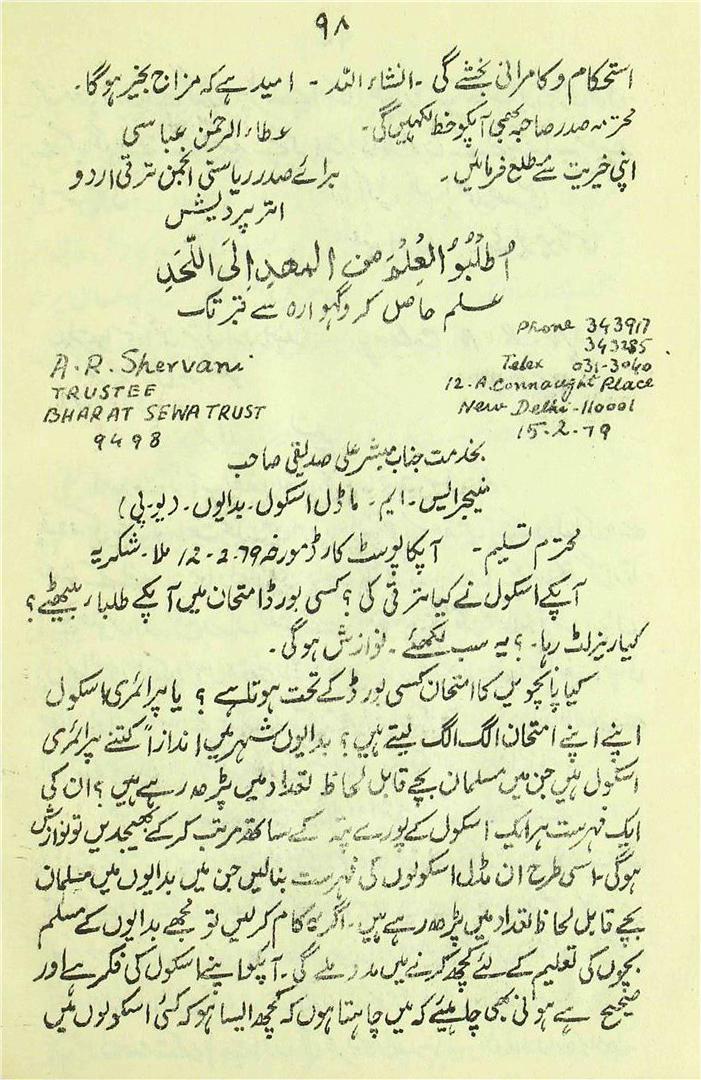 ۹۸
استحکام و کامرانی بخشے گی ۔ انشاء اللہ ۔ امید ہے کہ مزاج بخیر ہوگا۔
محترمہ صدر صاحبہ بھی آپکو خط لکھیں گی۔ عطاء الرحمٰن عباسی
اپنی خیریت سے مطلع فرمائیں۔ برائے صدر ریاستی انجمن ترقی اردو
اتر پردیش
اُطْلُبُوُ العِلْمَ مِنَ المھدِ اِلَی اللَّحَدِ
علم حاصل کرو گہوارہ سے قبر تک
Phone 343917
343285
A.R. Shervani Telex 031-3040
TRUSTEE 12-A. Connaught Place
BHARAT SEWA TRUST New Delhi-110001
9498 15-2-79
بخدمت جناب مبشر علی صدیقی صاحب
منیجر ایس۔ ایم۔ ماڈل اسکول۔ بدایوں۔ (یو۔پی)
محترم تسلیم۔ آپکا پوسٹ کارڈ مورخہ 12-2-79 ملا۔ شکریہ
آپکے اسکول نے کیا ترقی کی؟ کسی بورڈ امتحان میں آپکے طلباء بیٹھے؟
کیا ریزلٹ رہا۔؟ یہ سب لکھئے۔ نوازش ہوگی۔
کیا پانچویں کا امتحان کسی بورڈ کے تحت ہوتا ہے؟ یا پرائمری اسکول
اپنے اپنے امتحان الگ الگ لیتے ہیں؟ بدایوں شہر میں اندازاً کتنے پرائمری
اسکول ہیں جن میں مسلمان بچے قابل لحاظ تعداد میں پڑھ رہے ہیں؟ ان کی
ایک فہرست ہر ایک اسکول کے پورے پتہ کے ساتھ مرتب کر کے بھیجدیں تو نوازش
ہوگی۔ اسی طرح ان مڈل اسکولوں کی فہرست بنالیں جن میں بدایوں میں مسلمان
بچے قابل لحاظ تعداد میں پڑھ رہے ہیں۔ اگر یہ کام کر لیں تو مجھے بدایوں کے مسلم
بچوں کی تعلیم کے لئے کچھ کرنے میں مدد ملے گی۔ آپکو اپنے اسکول کی فکر ہے اور
صحیح ہے ہونی بھی چاہیئے کہ میں چاہتا ہوں کہ کچھ ایسا ہو کہ کئی اسکولوں میں